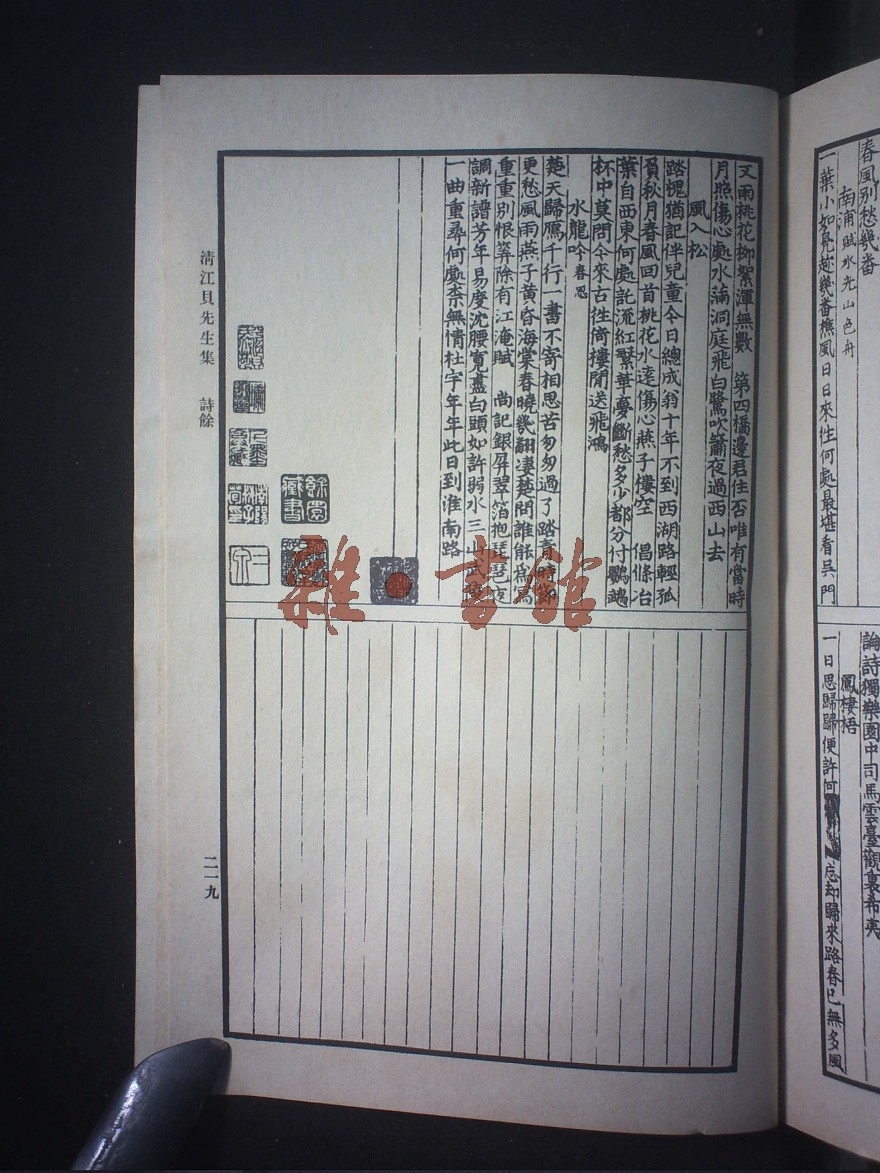 春風別愁幾番
南浦賦水光山色舟
一葉小如鳧趁幾番樵風日日來往何處最堪看吳門
論詩獨樂園中司馬雲臺觀裏希夷
鳳棲梧
一日思歸歸便許何
忘却歸來路春已無多風
又雨桃花柳絮渾無數　第四橋邊君住否唯有當時
月照傷心處水滿洞庭飛白鷺吹簫夜過西山去
風入松
踏槐猶記伴兒童今日總成翁十年不到西湖路輕孤
負秋月春風回首桃花水遠傷心燕子樓空　倡條冶
葉自西東何處託流紅繁華夢斷愁多少都分付鸚鵡
杯中莫問今來古往倚樓閒送飛鴻
水龍吟春思
楚天歸鴈千行一書不寄相思苦匆匆過了踏青時節
更愁風雨燕子黃昏海棠春曉幾翻凄楚問誰能爲寫
重重別恨筭除有江淹賦　尚記銀屏翠箔抱琵琶夜
調新譜芳年易度沈腰寬盡白頭如許弱水三山武陵
一曲重尋何處柰無情杜宇年年此日到淮南路
餘園藏書
清江貝先生集　詩餘
二一九
雜書館